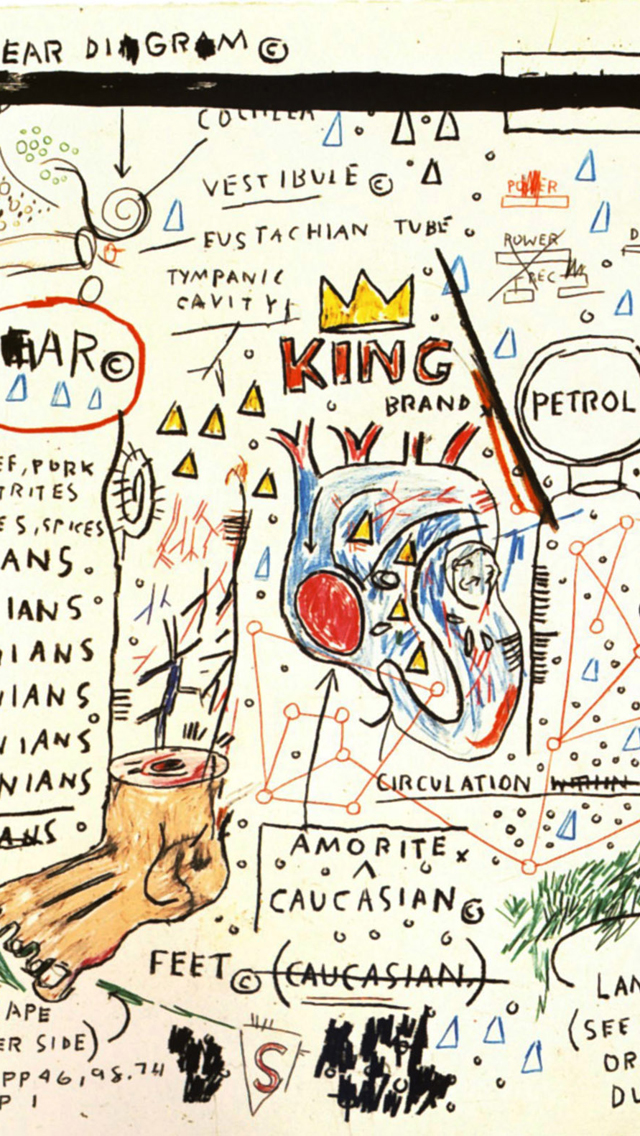 EAR DIAGRAM ©
COCHLEA
VESTIBULE ©
EUSTACHIAN TUBE
TYMPANIC
CAVITY
EAR ©
KING
BRAND
POWER
POWER
REC
PETROL
EF, PORK
TRITES
ES, SPICES
ANS
IANS
IANS
NIANS
NIANS
NIANS
ANS
CIRCULATION WITHIN
AMORITE x
^
CAUCASIAN ©
FEET © (CAUCASIAN)
APE
ER SIDE)
PP 46, 98. 74
P 1
S
LAN
(SEE
OR
DU